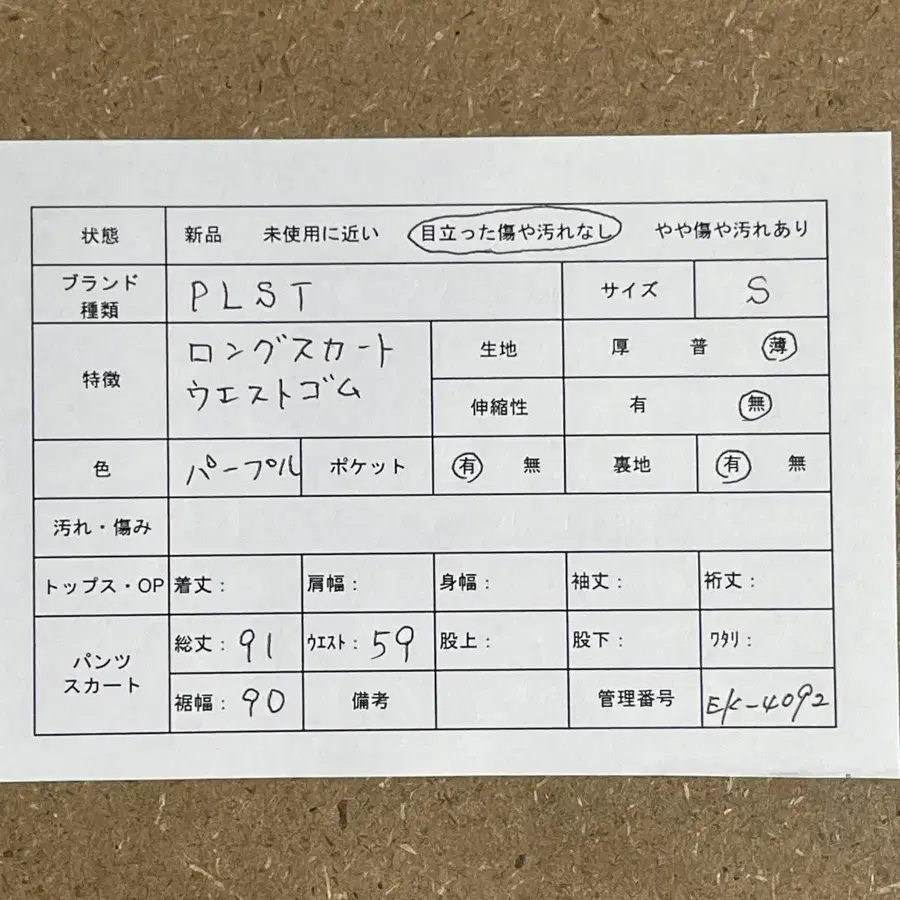 状態 新品 未使用に近い 目立った傷や汚れなし やや傷や汚れあり
ブランド 種類 PLST サイズ S
特徴 ロングスカート ウエストゴム
生地 厚 普 薄
伸縮性 有 無
色 パープル ポケット 有 無 裏地 有 無
汚れ・傷み
トップス・OP 着丈: 肩幅: 身幅: 袖丈: 裄丈:
パンツ スカート
総丈:91 ウエスト:59 股上: 股下: ワタリ:
裾幅:90 備考 管理番号 EK-4092